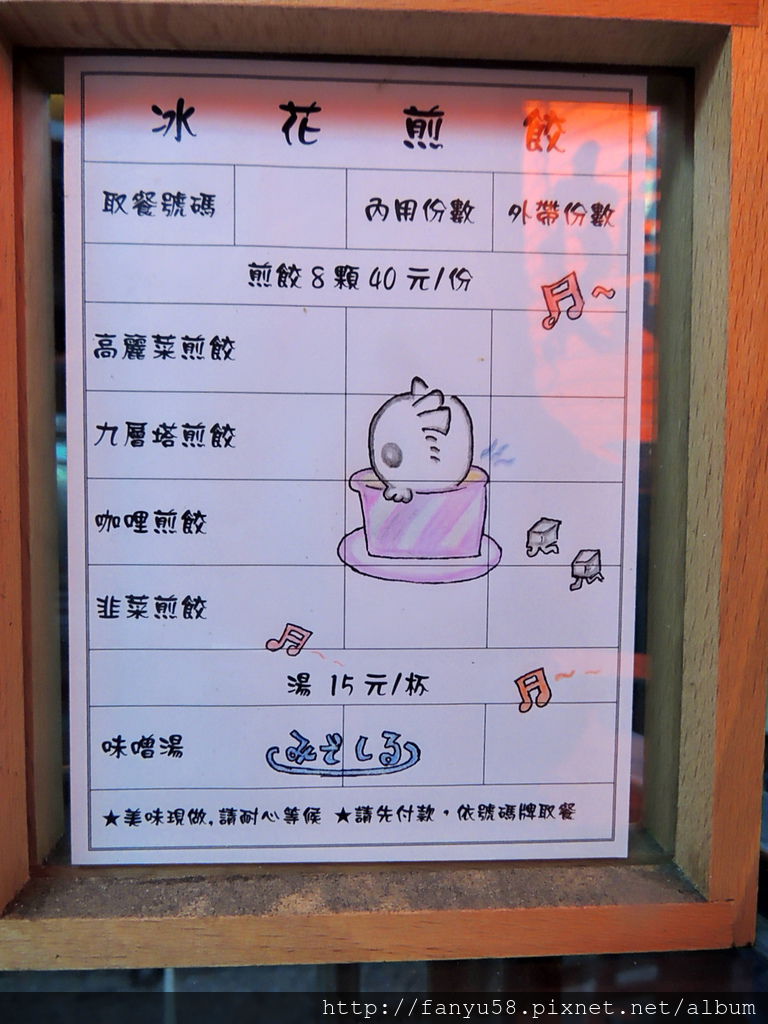 冰花煎餃
取餐號碼 內用份數 外帶份數
煎餃8顆40元/份
高麗菜煎餃
九層塔煎餃
咖哩煎餃
韭菜煎餃
湯15元/杯
味噌湯 みそしる
★美味現做,請耐心等候 ★請先付款,依號碼牌取餐
http://fanyu58.pixnet.net/album